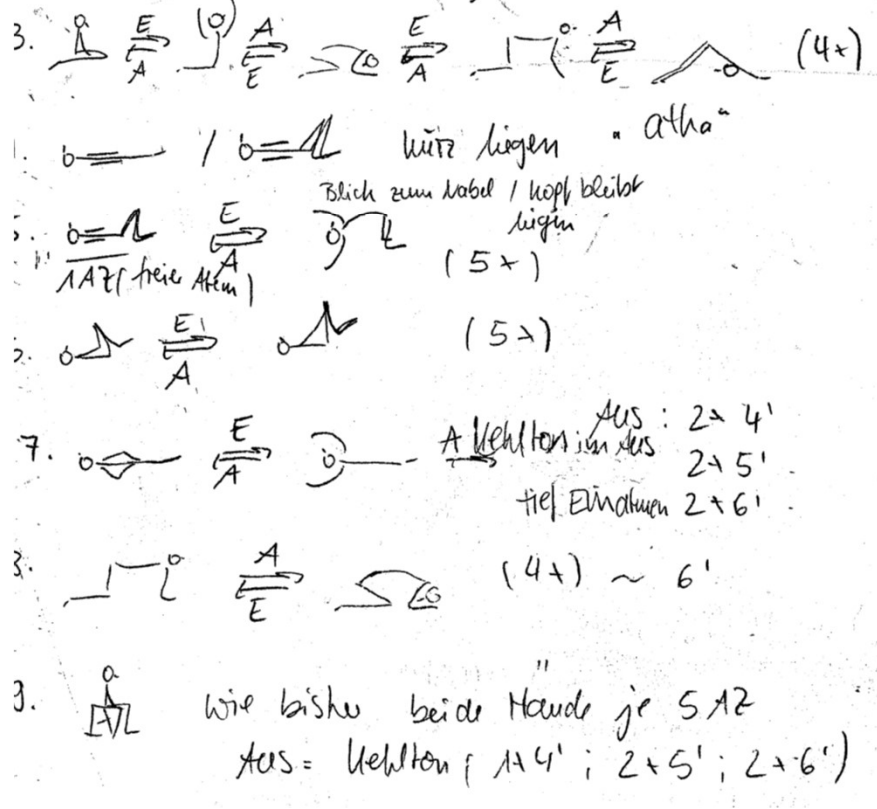 3. E A A E E A A E (4x)
/ kurz liegen "atha"
Blick zum Nabel / Kopf bleibt
liegen
E A
1AZ (freier Atem) (5x)
E A (5x)
7. E A A Kehlton im Aus Aus: 2x 4'
2x 5'
tief Einatmen 2x 6'
A E (4x) ~ 6'
wie bisher beide Hände je 5 AZ
Aus = Kehlton ( 1x4' ; 2x5' ; 2x6' )